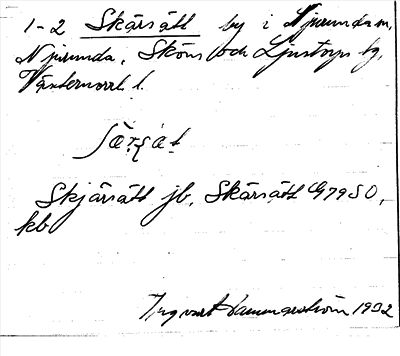 1-2 Skärsätt by i Njurunda sn,
Njurunda, Sköns och Ljustorps tg,
Västernorrl. l.
Skjärsätt jb, Skärsätt G79SO,
kb
Ingvart Hammarström 1932